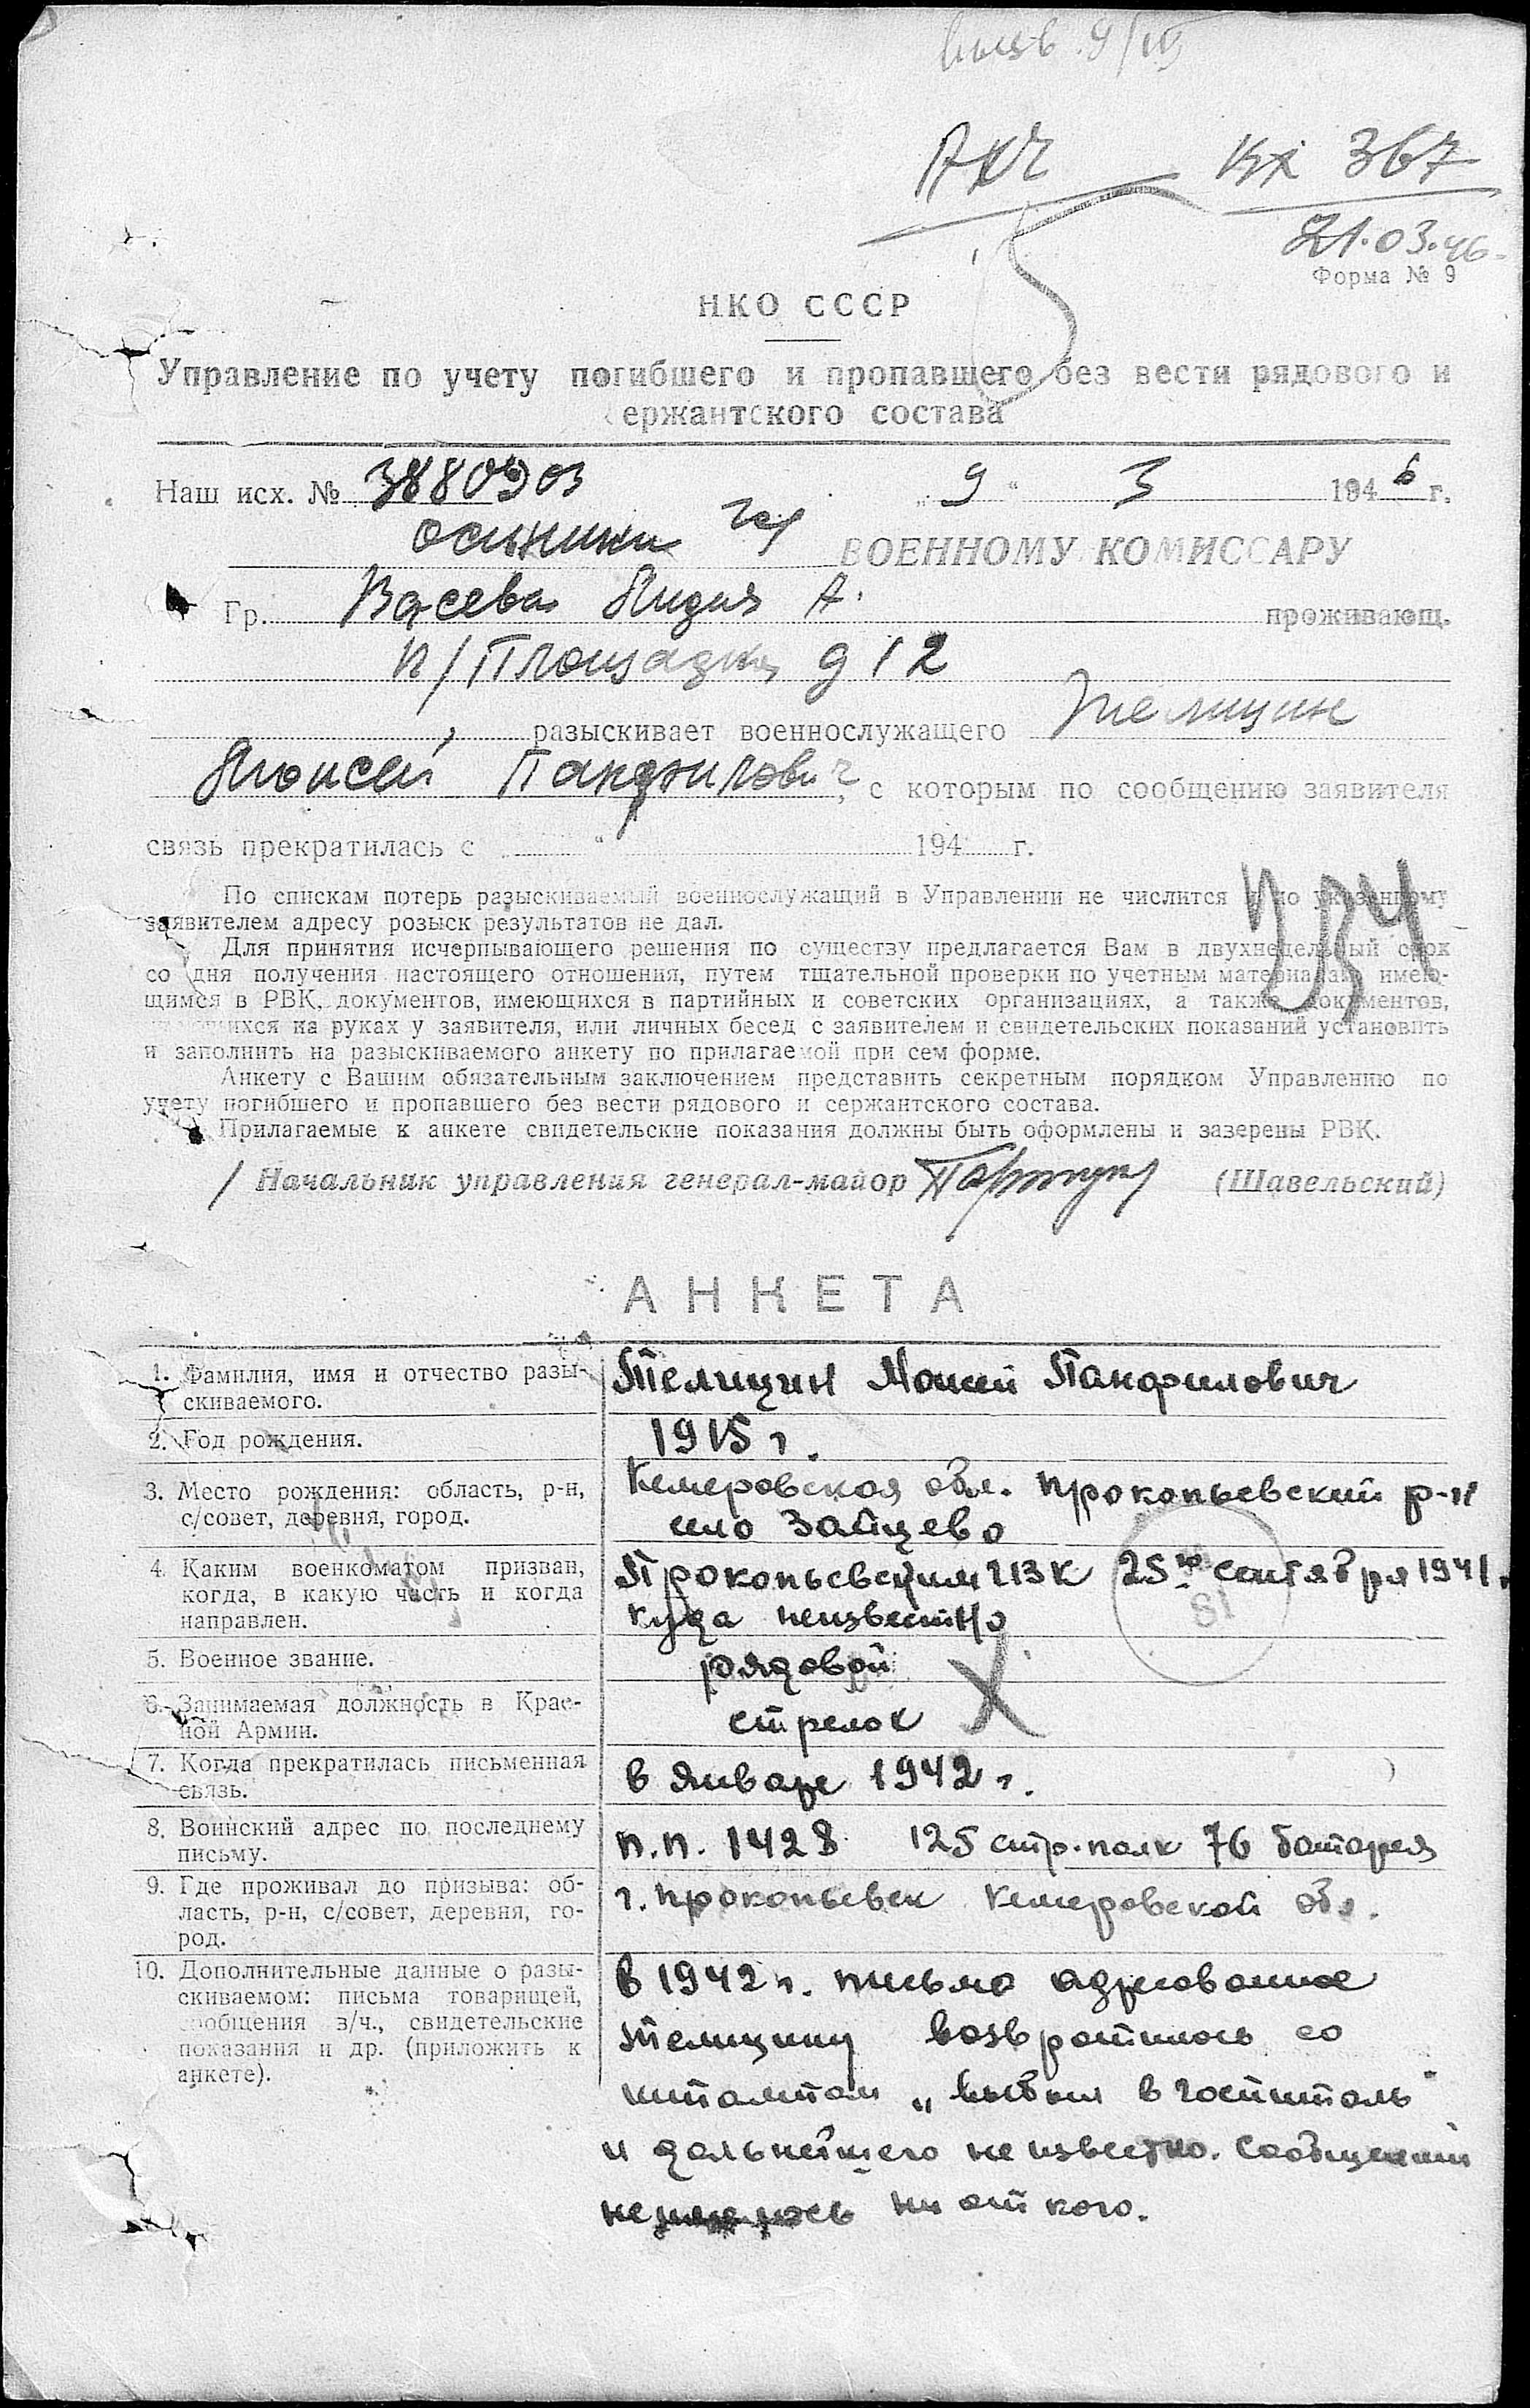 Вх 367
21.03.46
Форма № 9
НКО СССР
Управление по учету погибшего и пропавшего без вести рядового и
сержантского состава
Наш исх. № „9“ 3 1946 г.
Осинники ВОЕННОМУ КОМИССАРУ
Гр. Лидия А. проживающ.
п/Площадка д 12
разыскивает военнослужащего Телицин
Моисей Панфилович, с которым по сообщению заявителя
связь прекратилась с „ “ 194 г.
По спискам потерь разыскиваемый военнослужащий в Управлении не числится и по указанному
заявителем адресу розыск результатов не дал.
Для принятия исчерпывающего решения по существу предлагается Вам в двухнедельный срок
со дня получения настоящего отношения, путем тщательной проверки по учетным материалам имею-
щимся в РВК, документов, имеющихся в партийных и советских организациях, а также документов,
имеющихся на руках у заявителя, или личных бесед с заявителем и свидетельских показаний установить
и заполнить на разыскиваемого анкету по прилагаемой при сем форме.
Анкету с Вашим обязательным заключением представить секретным порядком Управлению по
учету погибшего и пропавшего без вести рядового и сержантского состава.
Прилагаемые к анкете свидетельские показания должны быть оформлены и заверены РВК.
/ Начальник управления генерал-майор (Шавельский)
АНКЕТА
1. Фамилия, имя и отчество разы-
скиваемого.
Телицин Моисей Панфилович
2. Год рождения.
1915 г.
3. Место рождения: область, р-н,
с/совет, деревня, город.
Кемеровская обл. Прокопьевский р-н
село Зайцево
4. Каким военкоматом призван,
когда, в какую часть и когда
направлен.
Прокопьевским ГВК 25го сентября 1941 г.
куда неизвестно
5. Военное звание.
рядовой
6. Занимаемая должность в Крас-
ной Армии.
стрелок
7. Когда прекратилась письменная
связь.
в январе 1942 г.
8. Воинский адрес по последнему
письму.
п.п. 1428 125 стр. полк 76 батарея
9. Где проживал до призыва: об-
ласть, р-н, с/совет, деревня, го-
род.
г. Прокопьевск Кемеровской обл.
10. Дополнительные данные о разы-
скиваемом: письма товарищей,
сообщения в/ч., свидетельские
показания и др. (приложить к
анкете).
В 1942 г. письмо адресованное
Телицину возвратилось со
штампом „выбыл в госпиталь“
и дальнейшего не известно. Сообщений
ни от кого.